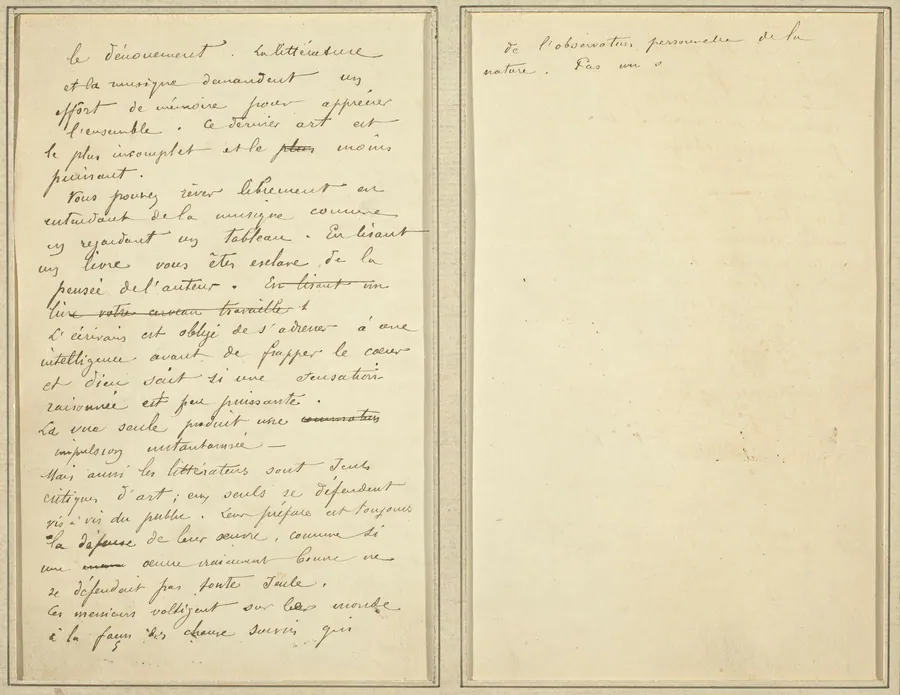 le dénouement. La littérature
et la musique demandent un
effort de mémoire pour apprécier
l'ensemble. Ce dernier art est
le plus incomplet et le plus moins
puissant.
Vous pouvez rêver librement en
entendant de la musique comme
en regardant un tableau. En lisant
un livre vous êtes esclave de la
pensée de l'auteur. En lisant un
livre votre cerveau travaille
L'écrivain est obligé de s'adresser à une
intelligence avant de frapper le cœur
et Dieu sait si une sensation
raisonnée est peu puissante.
La vue seule produit une
impulsion instantanée —
Mais aussi les littérateurs sont seuls
critiques d'art ; eux seuls se défendent
vis à vis du public. Leur préface est toujours
la défense de leur œuvre, comme si
une œuvre vraiment bonne ne
se défendait pas toute seule.
Ces messieurs voltigent sur le monde
à la façon des chauve souris qui
de l'observation personnelle de la
nature. Pas un